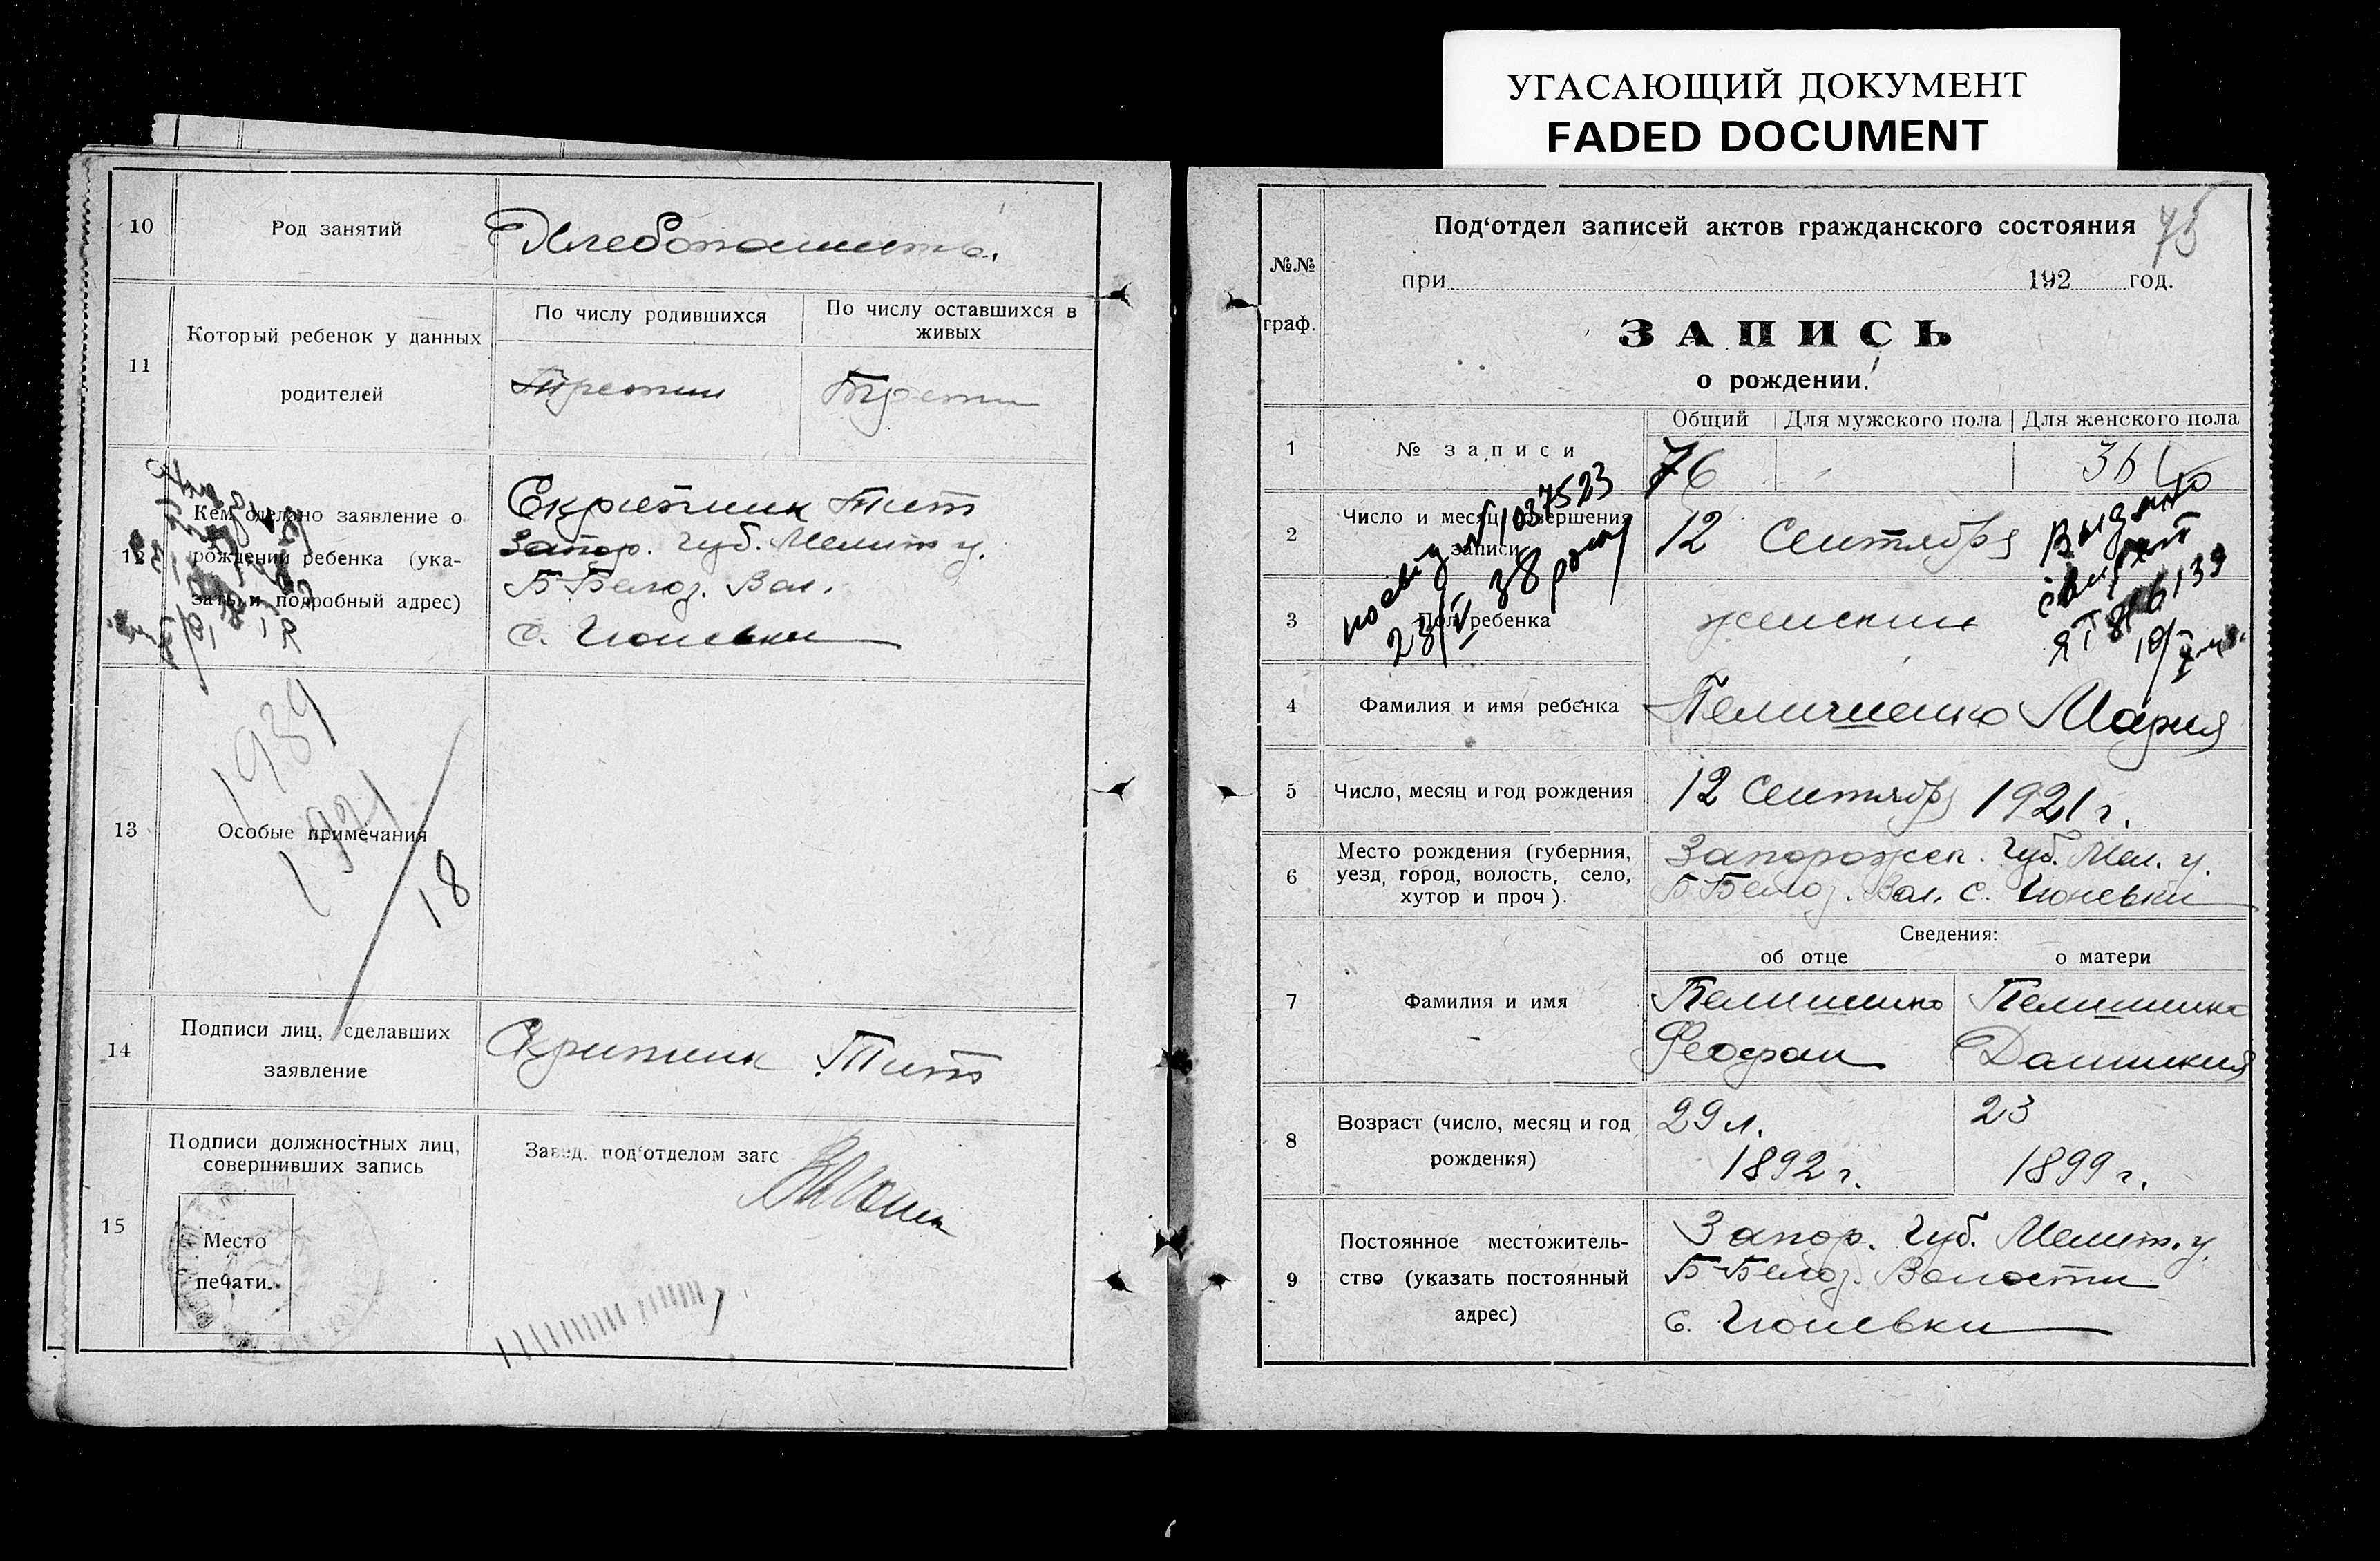 УГАСАЮЩИЙ ДОКУМЕНТ
FADED DOCUMENT
10
Род занятий
Хлебопашить.
11
Который ребенок у данных
родителей
По числу родившихся
По числу оставшихся в
живых
Третий
Трети
12
Кем сделано заявление о
рождении ребенка (ука-
зать и подробный адрес)
Скрипник Тит
Запор. Губ. Мелит у.
Б-Белоз. Вол.
с. Гюневки
13
Особые примечания
1939
1921
18
14
Подписи лиц, сделавших
заявление
Скрипник Тит
15
Подписи должностных лиц,
совершивших запись
Место
печати.
Завед. под‘отделом загс
75
№№
граф.
Под‘отдел записей актов гражданского состояния
при 192 год.
ЗАПИСЬ
о рождении.
Общий Для мужского пола Для женского пола
1
№ записи
76
36
2
Число и месяц совершения
записи
12 Сентября
3
Пол ребенка
женский
по свид № 1037523
28/V 38 року
Выдано
свидет
ЯТ 816139
4
Фамилия и имя ребенка
Пелишенко Мария
5
Число, месяц и год рождения
12 Сентября 1921 г.
6
Место рождения (губерния,
уезд, город, волость, село,
хутор и проч).
Запорожск. Губ. Мел. у.
Б-Белоз. Вол. с. Гюневки
Сведения:
об отце
о матери
7
Фамилия и имя
Пелишенко
Феофан
Пелишенко
Домникия
8
Возраст (число, месяц и год
рождения)
29 л.
1892 г.
23
1899 г.
9
Постоянное местожитель-
ство (указать постоянный
адрес)
Запор. Губ. Мелит. у.
Б-Белоз. Волости
с. Гюневки